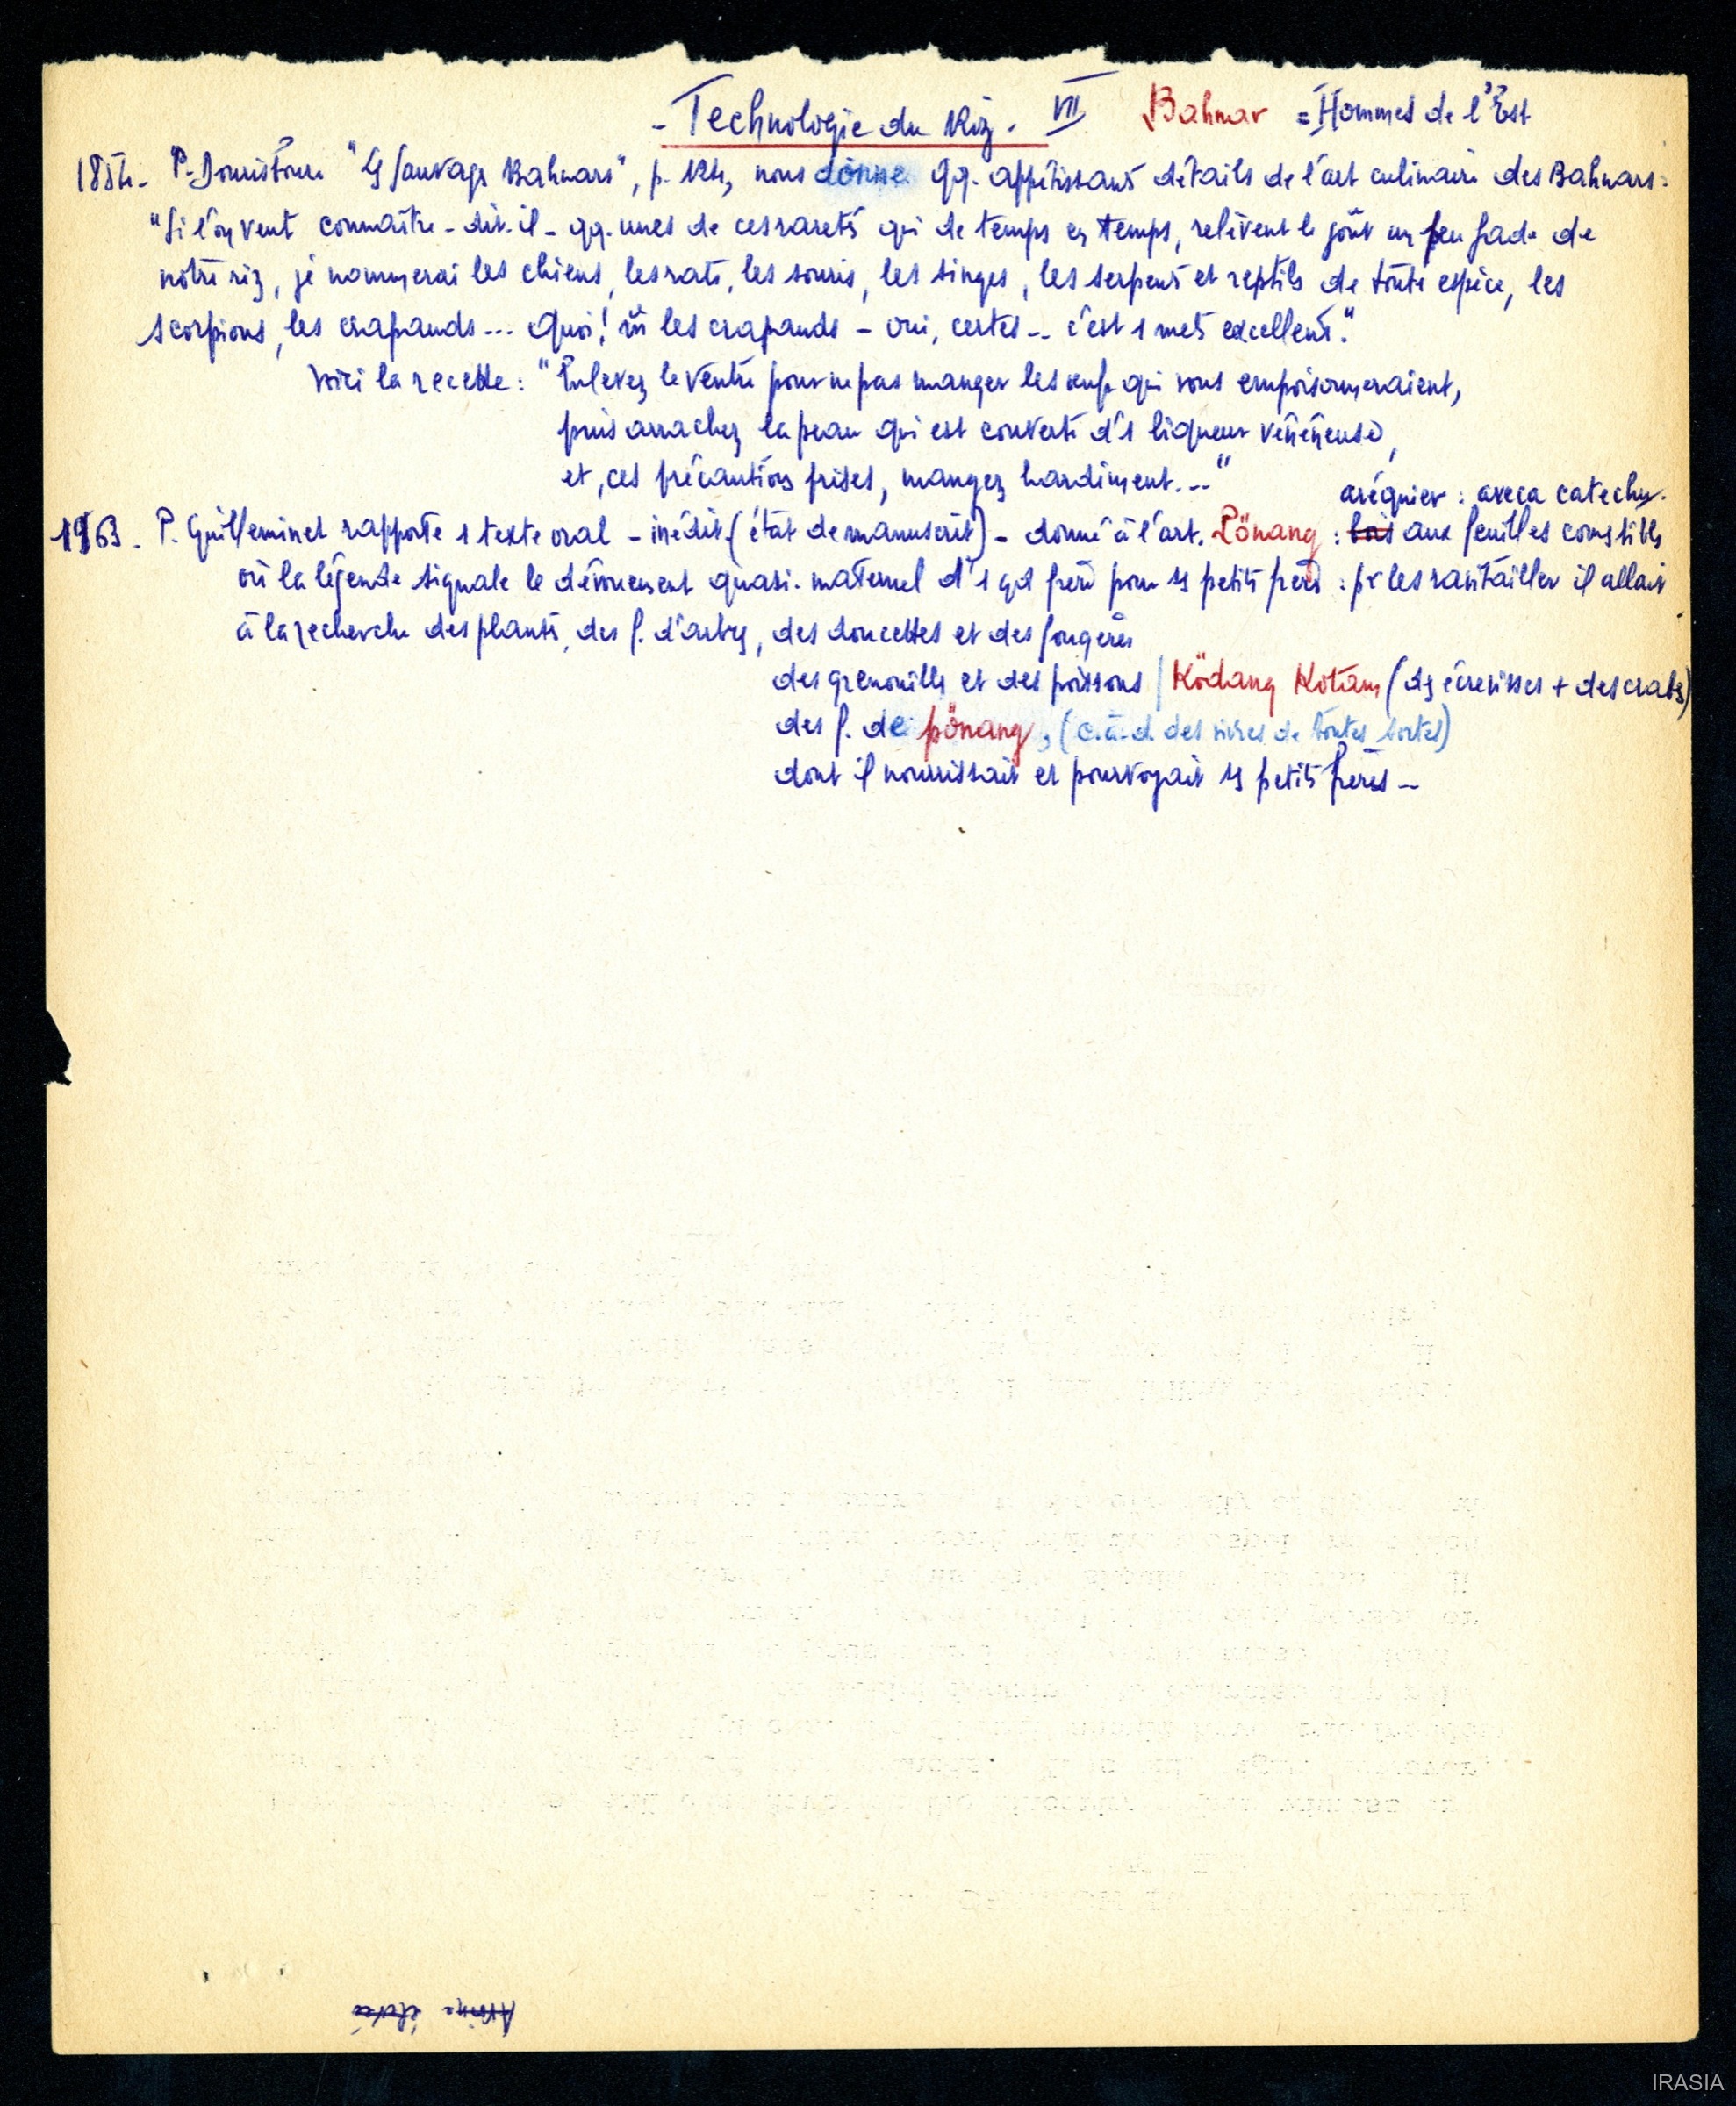 - Technologie du Riz. VII Bahnar = Hommes de l'Est
185 - P. Dourisboure "Ls Sauvags Bahnars", p. nous donne qq. appétissants détails de l'art culinaire des Bahnars :
"Si l'on veut connaître - dit-il - qq. unes de ces raretés qui de temps en temps, relèvent le goût un peu fade de
notre riz, je nommerai les chiens, les rats, les souris, les singes, les serpents et reptils de toute espèce, les
scorpions, les crapauds... Quoi! les crapauds - oui, certes -- c'est 1 mets excellent."
Voici la recette : "Enlevez le ventre pour ne pas manger les œufs qui vous empoisonneraient,
puis arrachez la peau qui est couverte d'1 liqueur vénéneuse,
et, ces précautions prises, mangez hardiment..."
aréquier : areca catechu.
1963. P. Guilleminet rapporte 1 texte oral - inédit (état de manuscrit) - donné à l'art. Pönang : bois aux feuilles comstibls
où la légende signale le dévouement quasi-maternel d'1 gd frère pour ss petits frères : pr les ravitailler il allait
à la recherche des plants, des f. d'arbrs, des doucettes et des fougères
des grenouills et des poissons | Ködang Kotam (ds écrevisses + des crabs)
des f. de pönang, (c.à.d. des vivres de toutes sortes)
dont il nourrissait et pourvoyait ss petits frères -